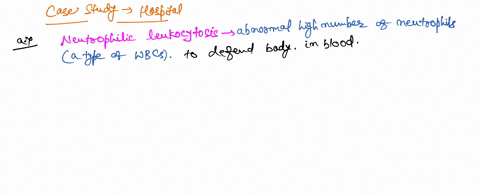 Case Study → Hospital
Neutrophilic leukocytosis → abnormal high number of neutrophils
(a type of WBCs). to defend body. in blood.